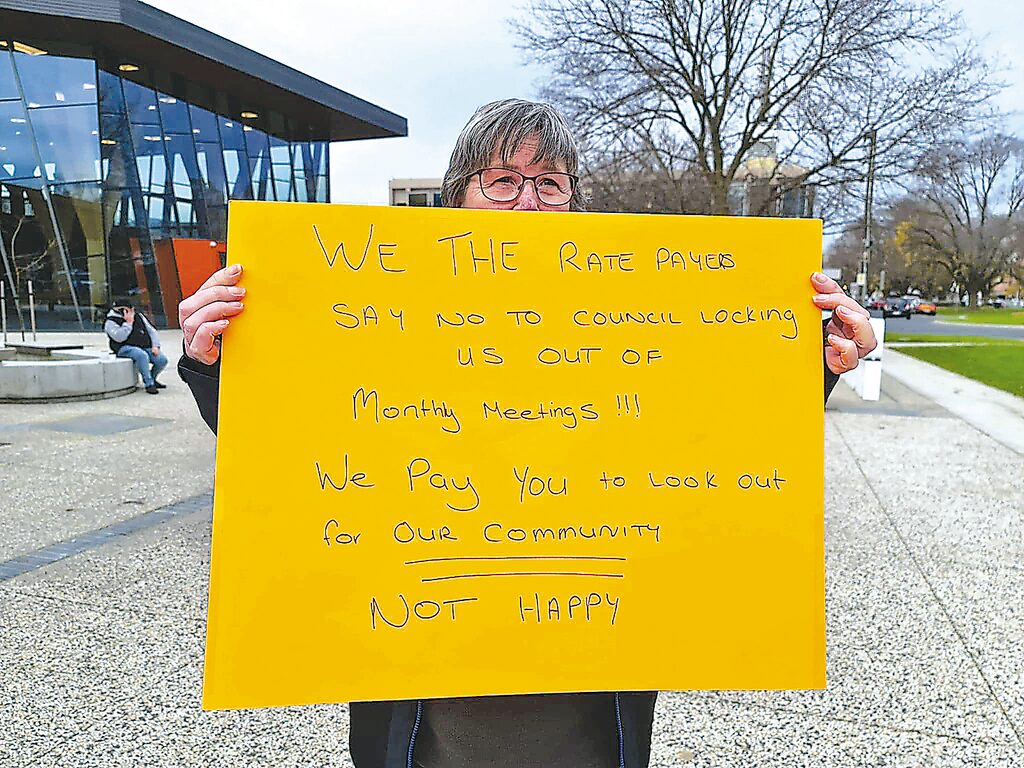 WE THE RATE PAYERS
SAY NO TO COUNCIL LOCKING
US OUT OF
Monthly Meetings !!!
We Pay You to Look out
for OUR COMMUNITY
NOT HAPPY